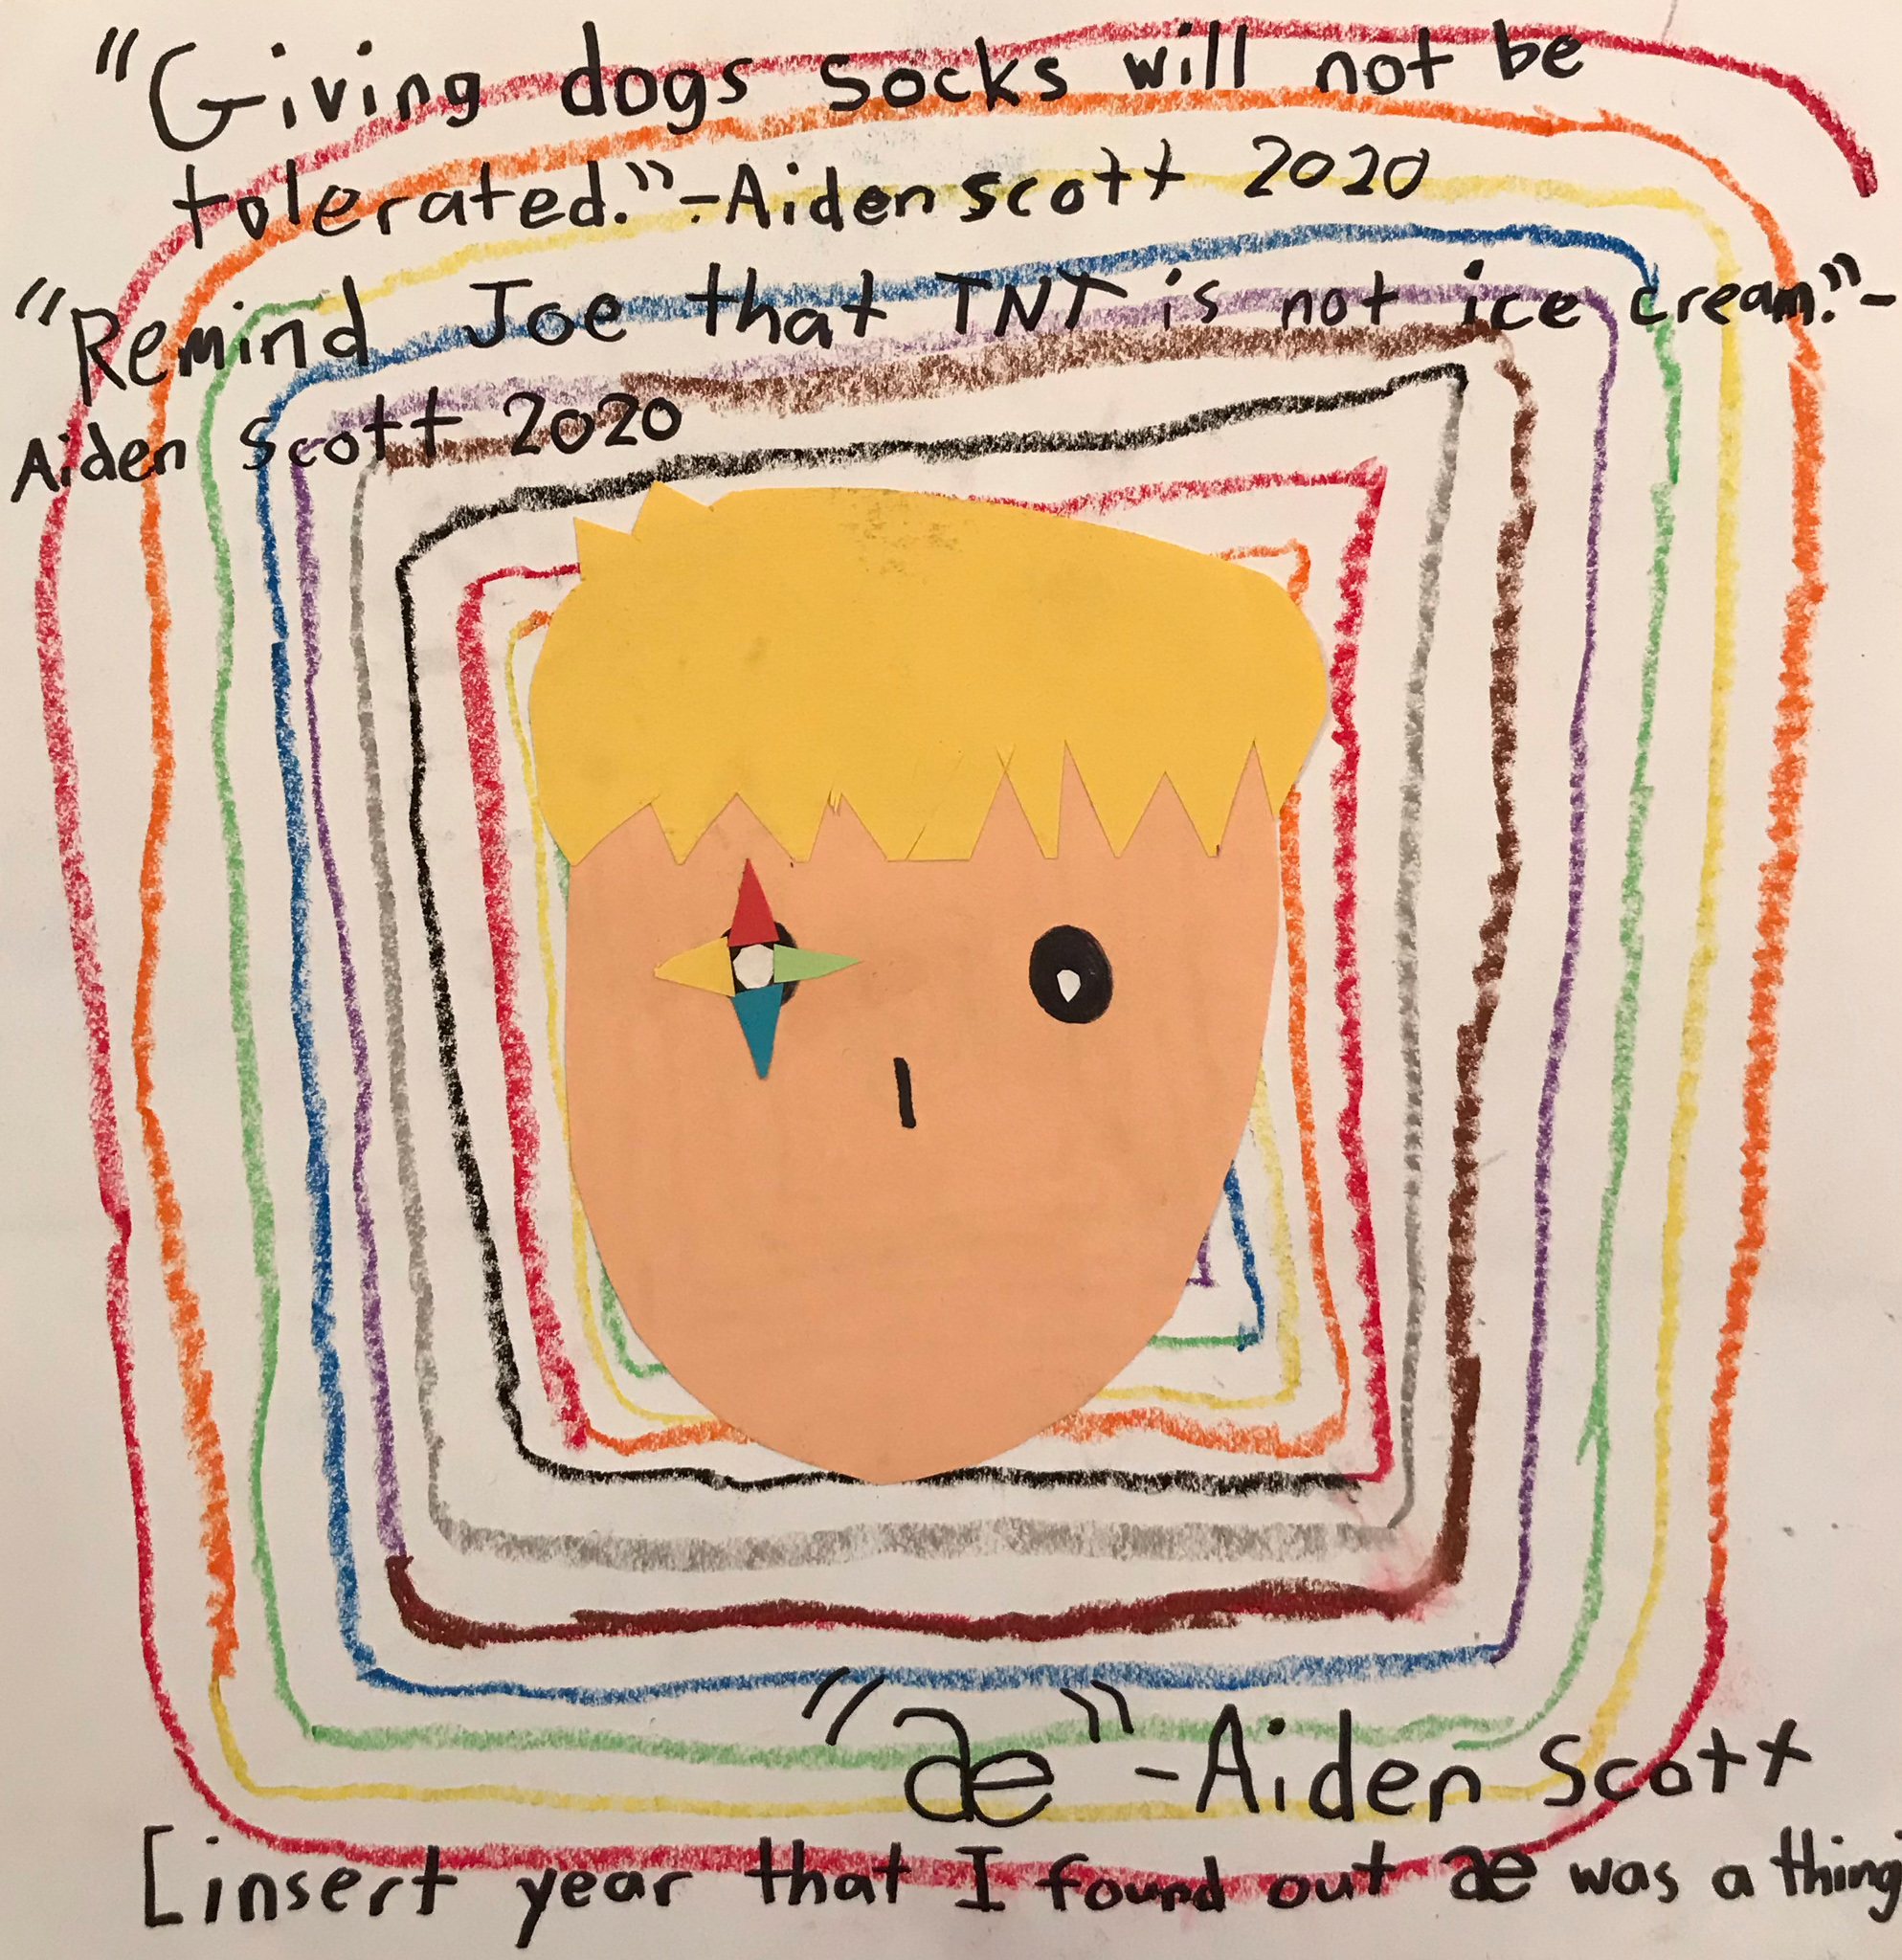 "Giving dogs socks will not be
tolerated."-Aiden scott 2020
"Remind Joe that TNT is not ice cream."-
Aiden Scott 2020
"æ"-Aiden Scott
[insert year that I found out æ was a thing]